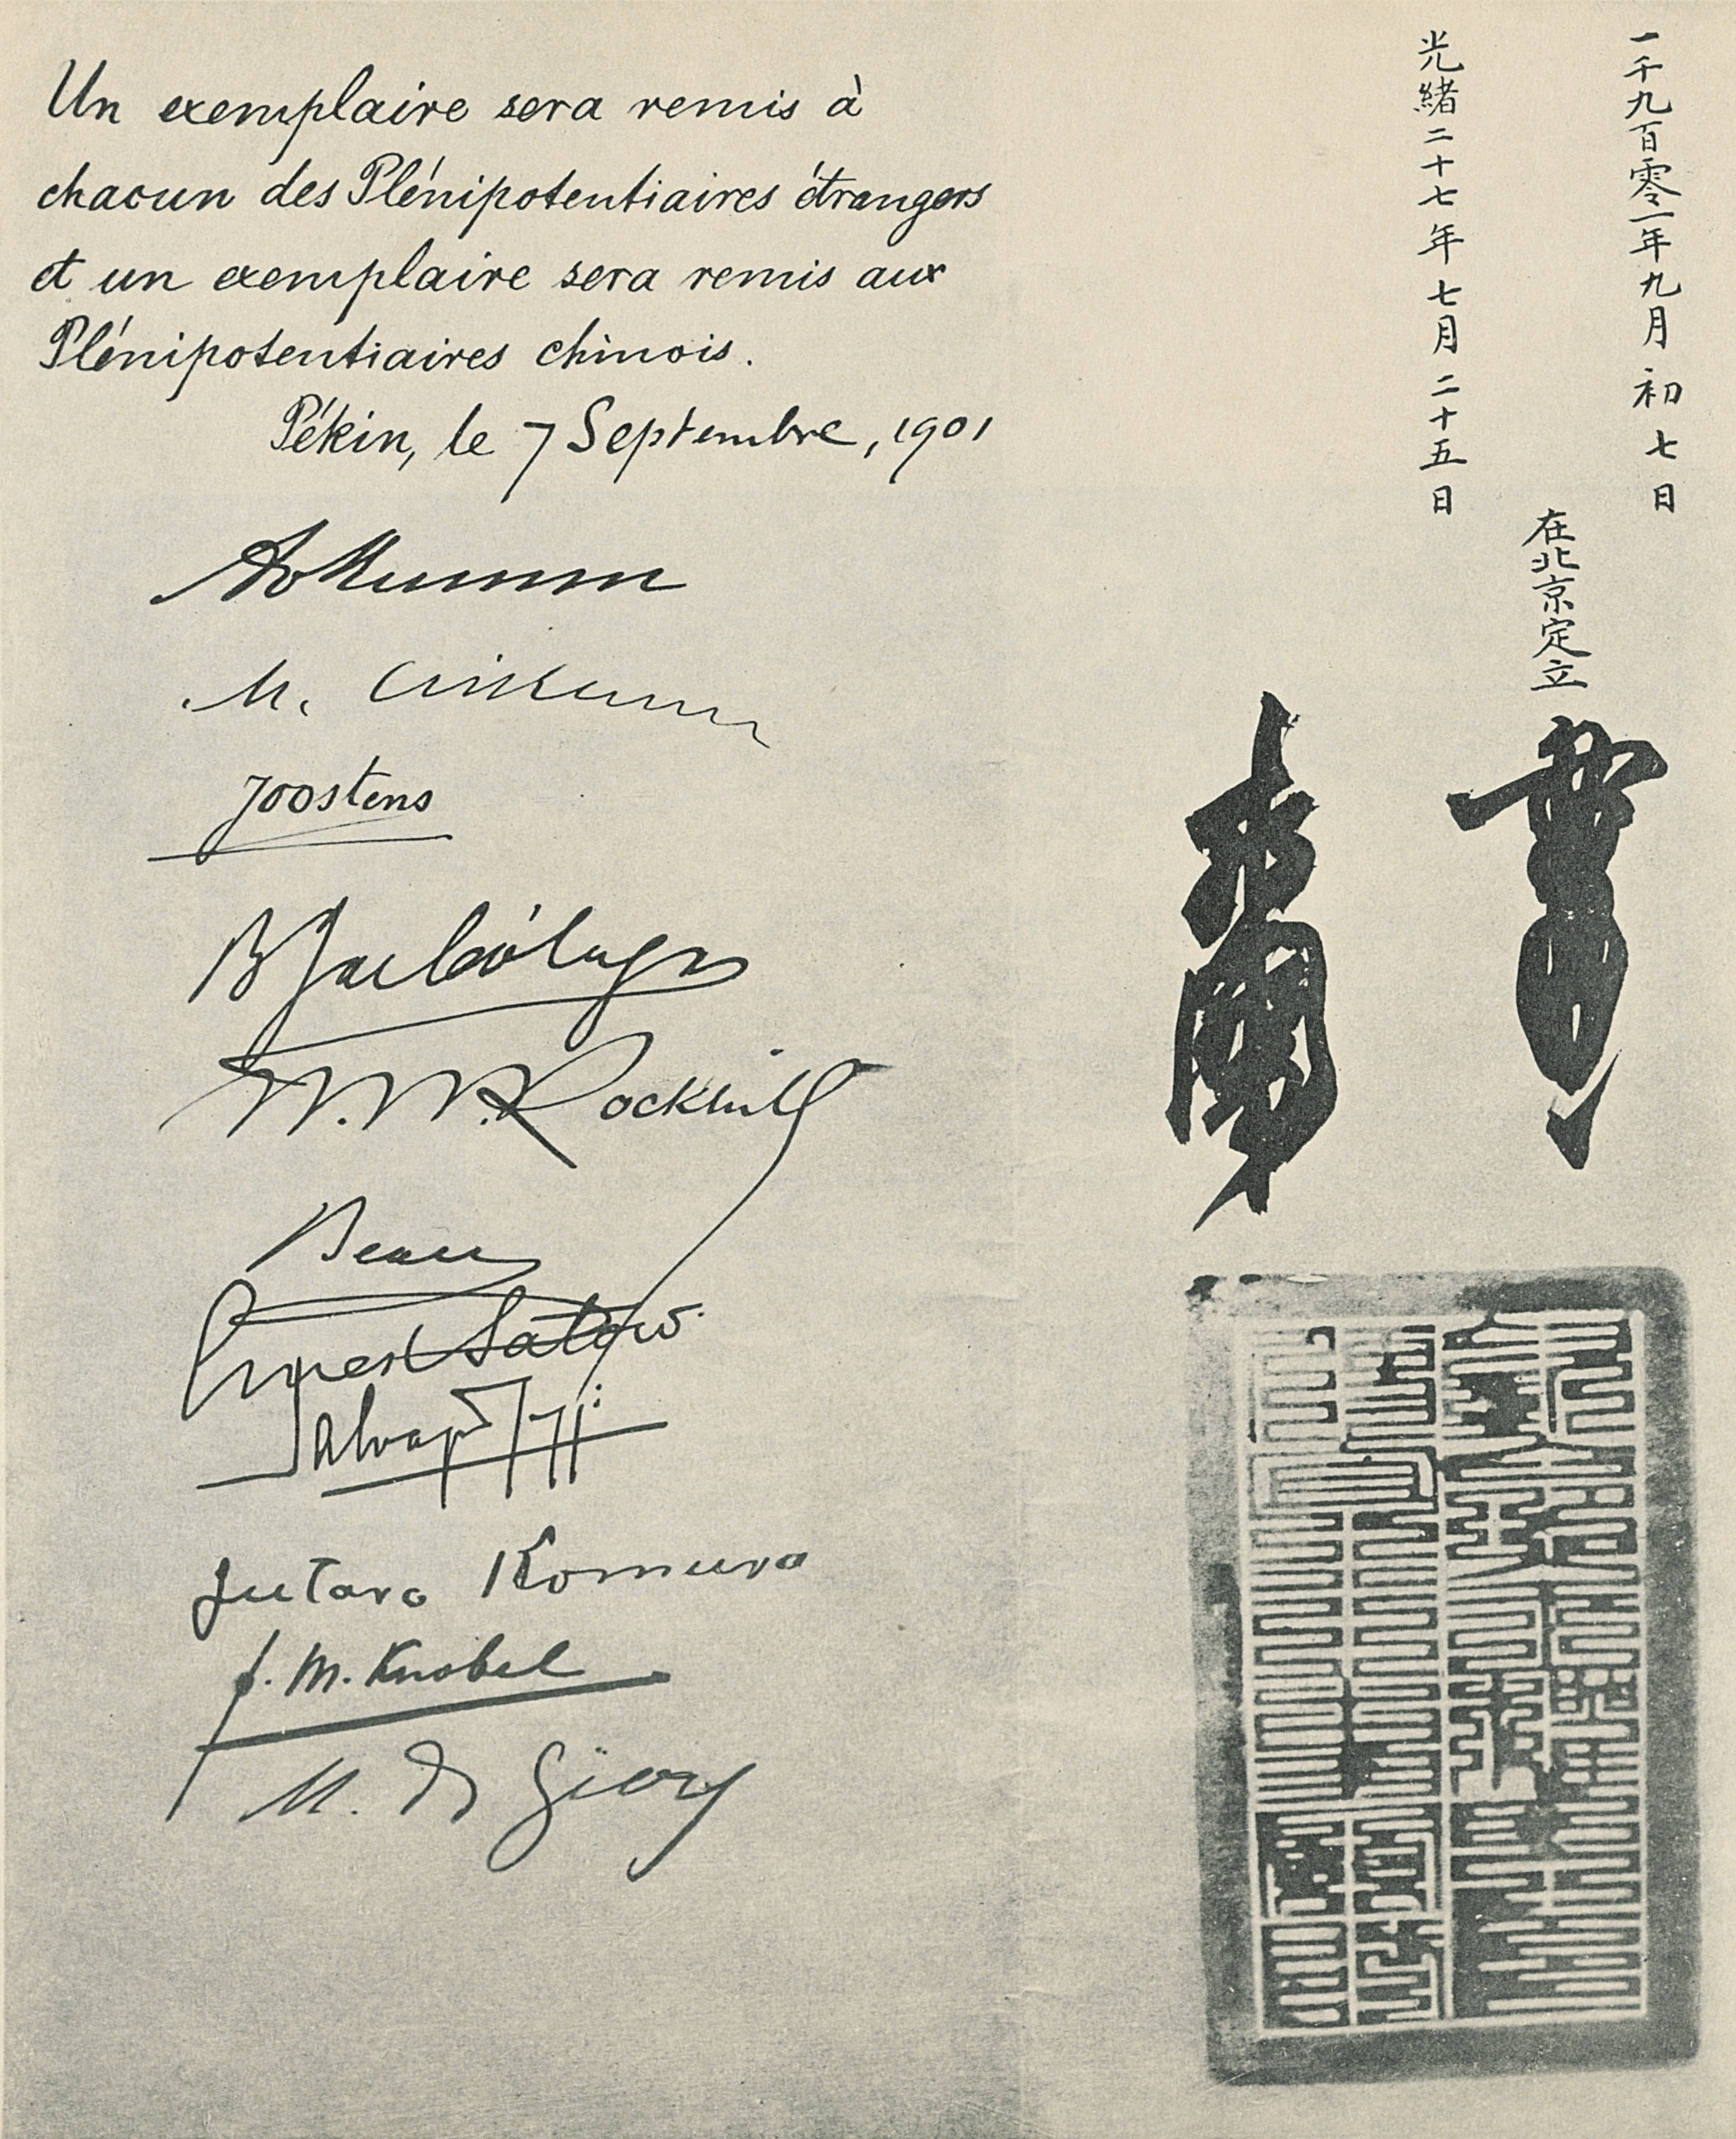 Un exemplaire sera remis à
chacun des Plénipotentiaires étrangers
et un exemplaire sera remis aux
Plénipotentiaires chinois.
Pékin, le 7 Septembre, 1901
M.
Joostens
W. W. Rockhill
Beau
Ernest Satow
Salvago Raggi
Jutaro Komura
F. M. Knobel
M. de Giers
一千九百零一年九月初七日
光緒二十七年七月二十五日
在北京定立